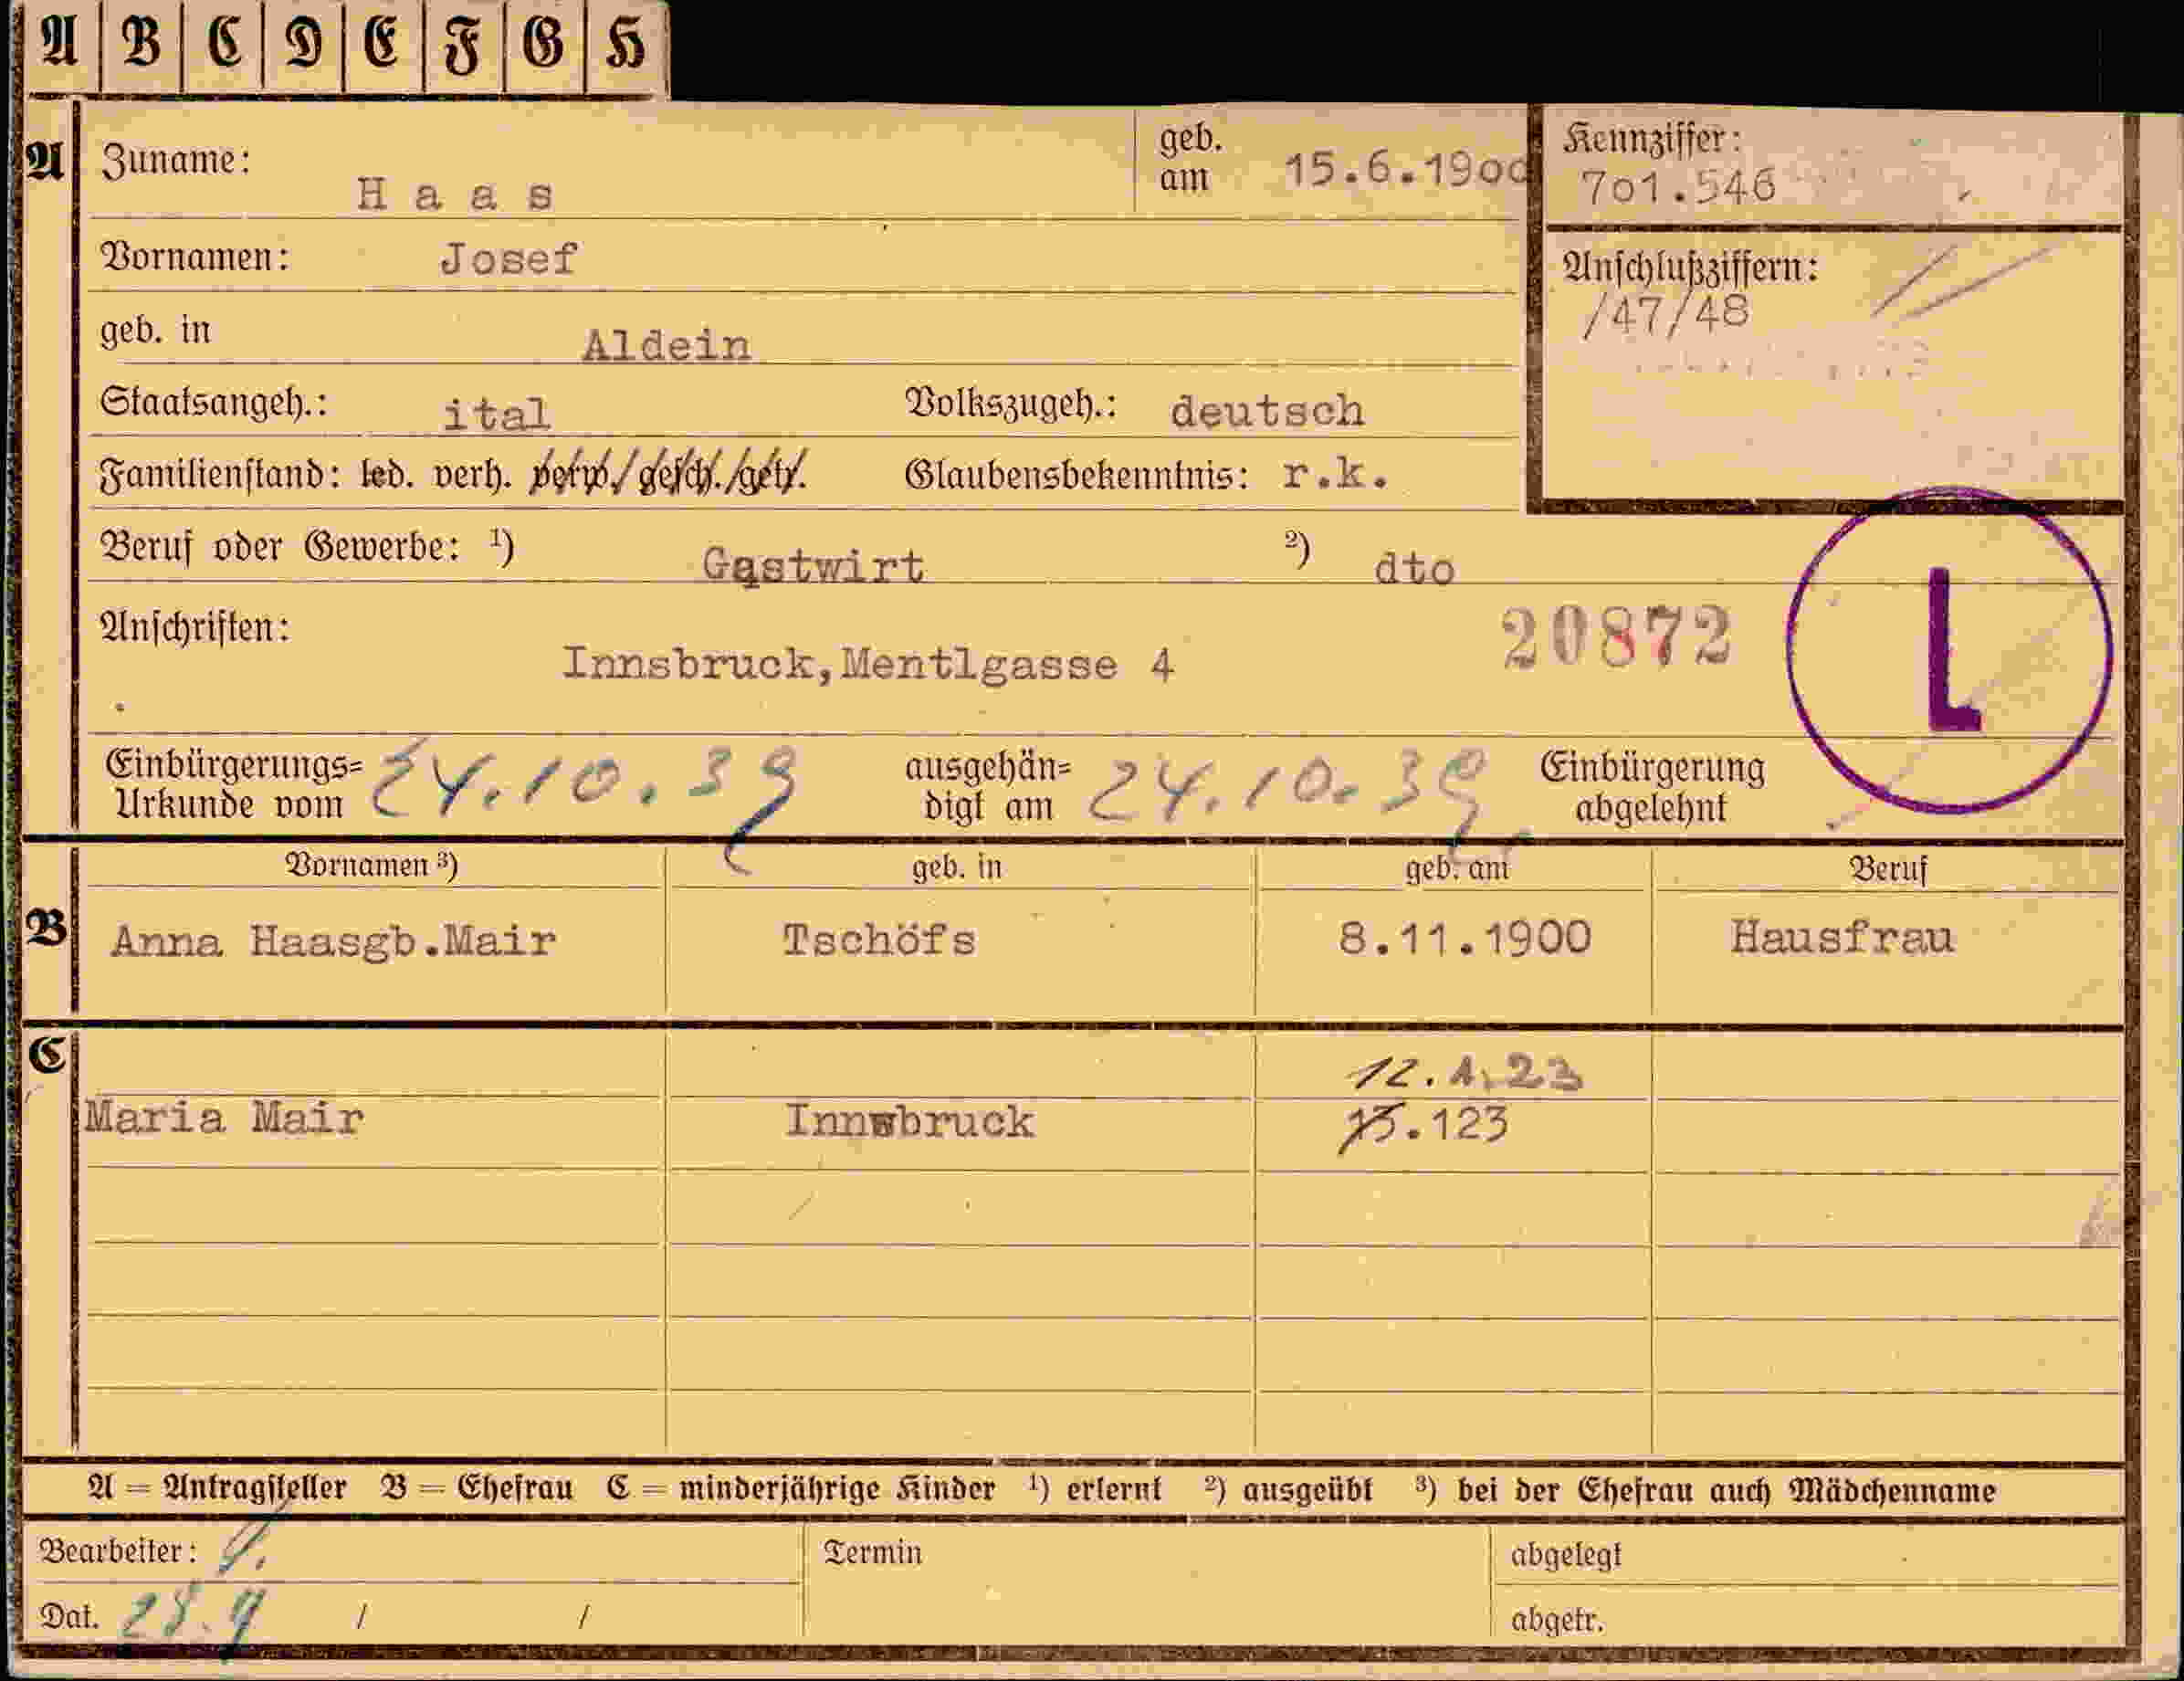 A B C D E F G H
A Zuname: Haas geb. am 15.6.1900 Kennziffer: 701.546
Vornamen: Josef Anschlußziffern: /47/48
geb. in Aldein
Staatsangeh.: ital Volkszugeh.: deutsch
Familienstand: led. verh. verw./gesch./getr. Glaubensbekenntnis: r.k.
Beruf oder Gewerbe: ¹) Gastwirt ²) dto
Anschriften: Innsbruck, Mentlgasse 4 20872 L
Einbürgerungs= Urkunde vom 24.10.39 ausgehän= digt am 24.10.39 Einbürgerung abgelehnt
Vornamen ³) geb. in geb. am Beruf
B Anna Haasgb.Mair Tschöfs 8.11.1900 Hausfrau
C 12.1.23
Maria Mair Innsbruck 15.123
A = Antragsteller B = Ehefrau C = minderjährige Kinder ¹) erlernt ²) ausgeübt ³) bei der Ehefrau auch Mädchenname
Bearbeiter: Termin abgelegt
Dat. 28.9 / / abgetr.